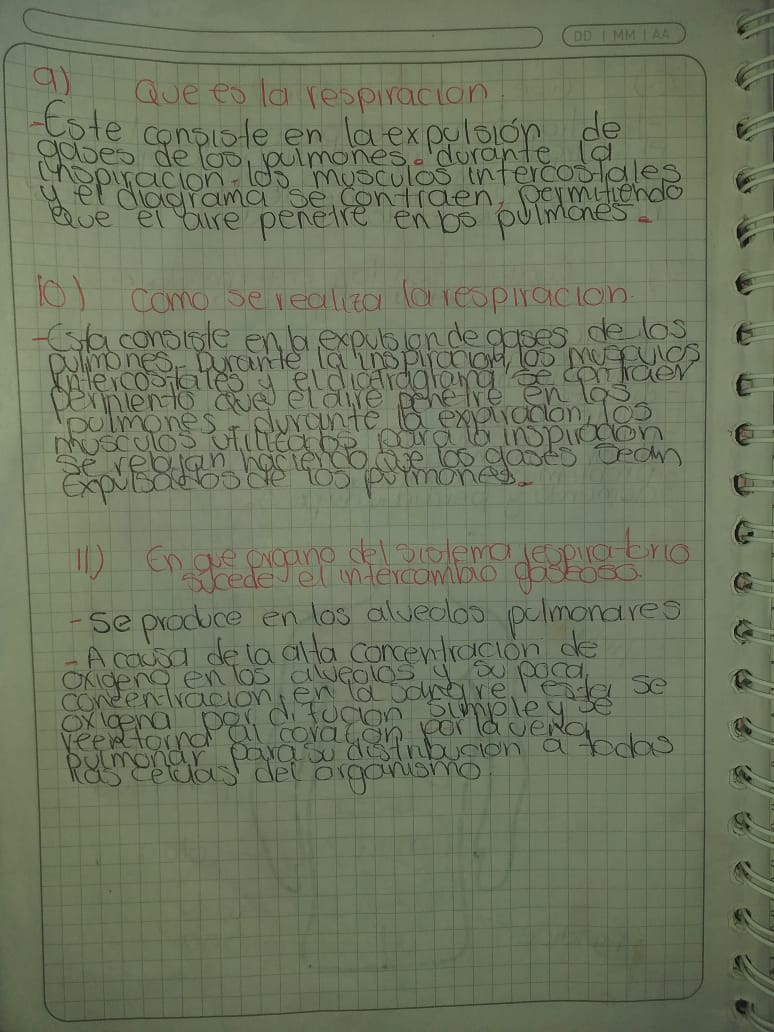 DD | MM | AA
9) Que es la respiracion.
-Este consiste en la expulsión de
gases de los pulmones. durante la
inspiracion, los musculos intercostales
y el diagrama se contraen, permitiendo
que el aire penetre en los pulmones.
10) como se realiza la respiracion.
-Esta consiste en la expulsion de gases de los
pulmones. Durante la inspiracion, los musculos
intercostales y el se contraen
que el aire penetre en los
pulmones, durante la expiracion, los
musculos para la inspiracion
se relajan haciendo que los gases sean
expulsados de los pulmones.
11) En que organo del sistema respiratorio
sucede el intercambio gaseoso.
- Se produce en los alveolos pulmonares
- A causa de la alta concentracion de
oxigeno en los alveolos y su poca
concentracion en la sangre, esta se
oxigena por difucion simple y se
al corazon por la vena
pulmonar para su distribucion a todas
las celulas del organismo.